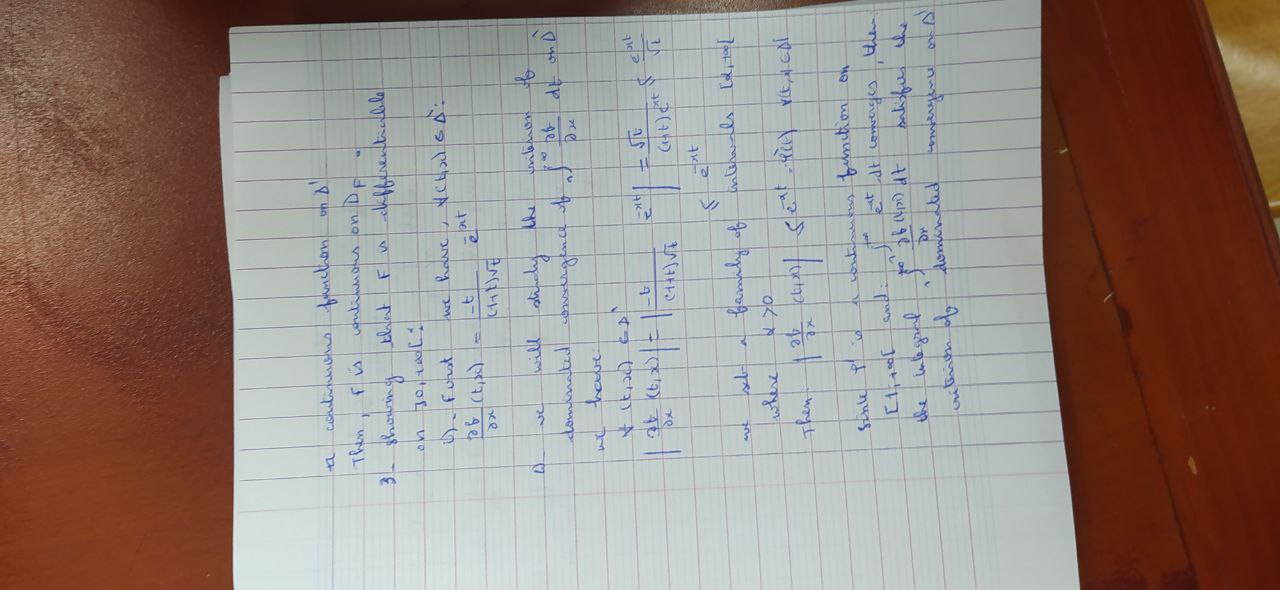 a continuous function on Δ'
Then, F is continuous on D_F.
3- showing that F is differentiable
on ]0,+∞[:
b)- First we have, ∀(t,x) ∈ Δ':
∂f/∂x (t,x) = -t/((1+t)√t) e^{-xt}
we will study the criterion of
dominated convergence of ∫_1^{+∞} ∂f/∂x dt on Δ'
we have:
∀ (t,x) ∈ Δ'
|∂f/∂x (t,x)| = |-t/((1+t)√t) e^{-xt}| = √t/((1+t)e^{xt}) ≤ e^{-xt}/√t
≤ e^{-xt}
we set a family of intervals [α,+∞[
where α>0
Then: |∂f/∂x (t,x)| ≤ e^{-αt} = φ(t) ∀(t,x) ∈ Δ'
Since φ is a continuous function on
[1,+∞[ and: ∫_1^{+∞} e^{-αt} dt converges, then
the integral ∫_1^{+∞} ∂f/∂x (t,x) dt satisfies the
criterion of dominated convergence on Δ'